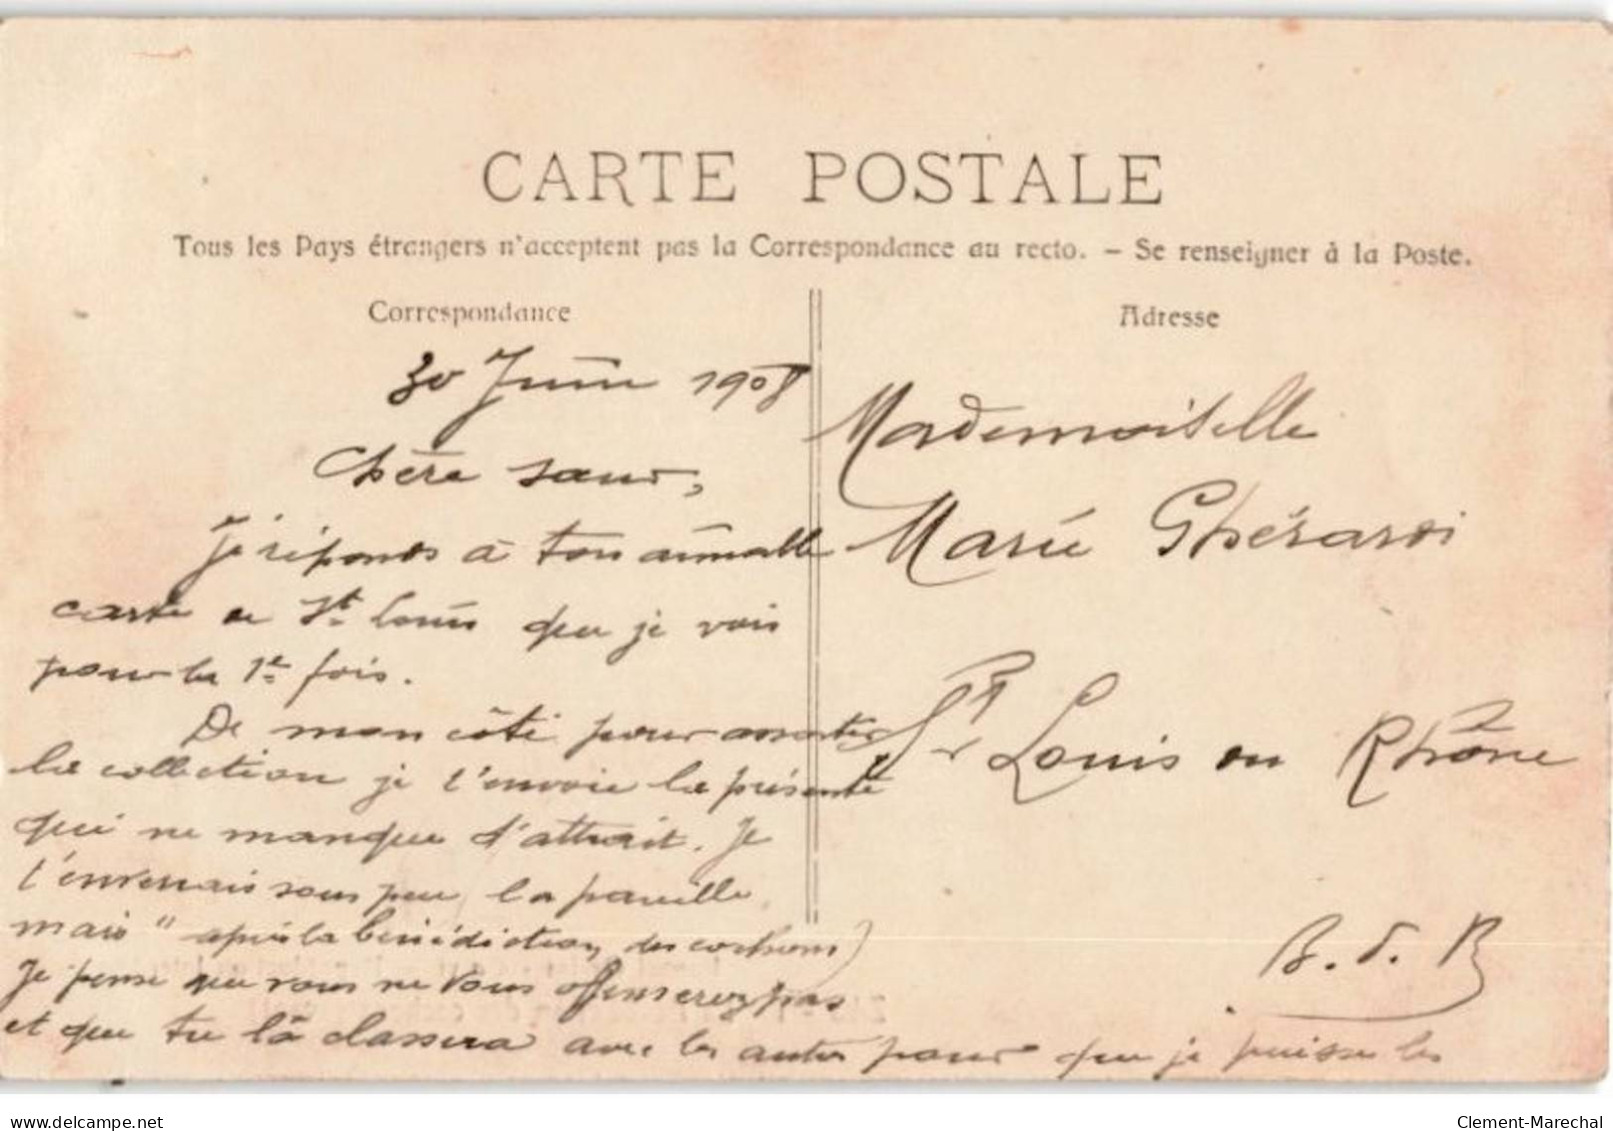 CARTE POSTALE
Tous les Pays étrangers n'acceptent pas la Correspondance au recto. – Se renseigner à la Poste.
Correspondance
30 Juin 1908
Chère sœur,
Je réponds à ton aimable
carte de St Louis que je vois
pour la 1re fois.
De mon côté pour assortir
la collection je t'envoie la présente
qui ne manque d'attrait. Je
t'enverrais sous peu la pareille
mais " après la bénédiction des cochons)
Je pense que vous ne vous offenserez pas
et que tu la classera avec les autres pour que je puisse les
Adresse
Mademoiselle
Marie Ghérardi
St Louis du Rhône
B. d. R
delcampe.net
Clement-Marechal